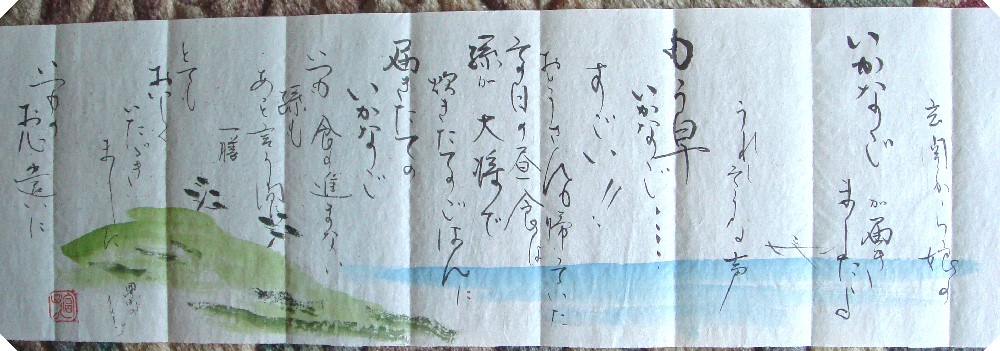 玄関から娘の
いかなごが届き
ましたよ
うれしそうな声
もう早
いかなご……
すごい!!…
おとうさんも帰っていた
今日の昼食は
孫が大将で
炊きたてのごはんに
届きたての
いかなご
いつも食の進まない
孫も
あっと言う間に
一膳
とても
おいしく
いただき
ました
いつもの
お心遣いに